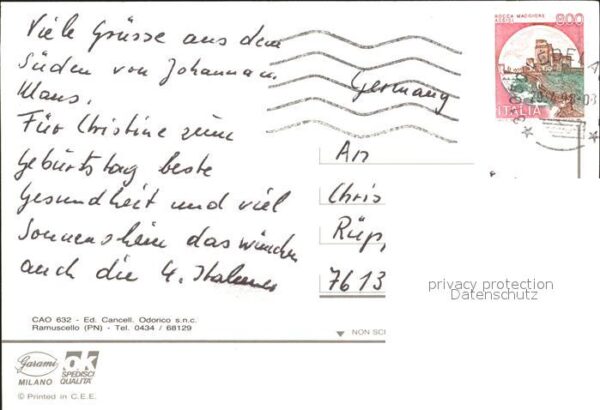 Viele Grüsse aus dem
Süden von Johanna u.
Klaus.
Für Christine zum
Geburtstag beste
Gesundheit und viel
Sonnenschein das wünschen
auch die 4. Italiener
Germany
An
Chris
Rüp,
7613
ROCCA MAGGIORE
ASSISI
800
ITALIA
privacy protection
Datenschutz
CAO 632 - Ed. Cancell. Odorico s.n.c.
Ramuscello (PN) - Tel. 0434 / 68129
NON SCI
Garami
MILANO
ok
SPEDISCI
QUALITÀ
© Printed in C.E.E.